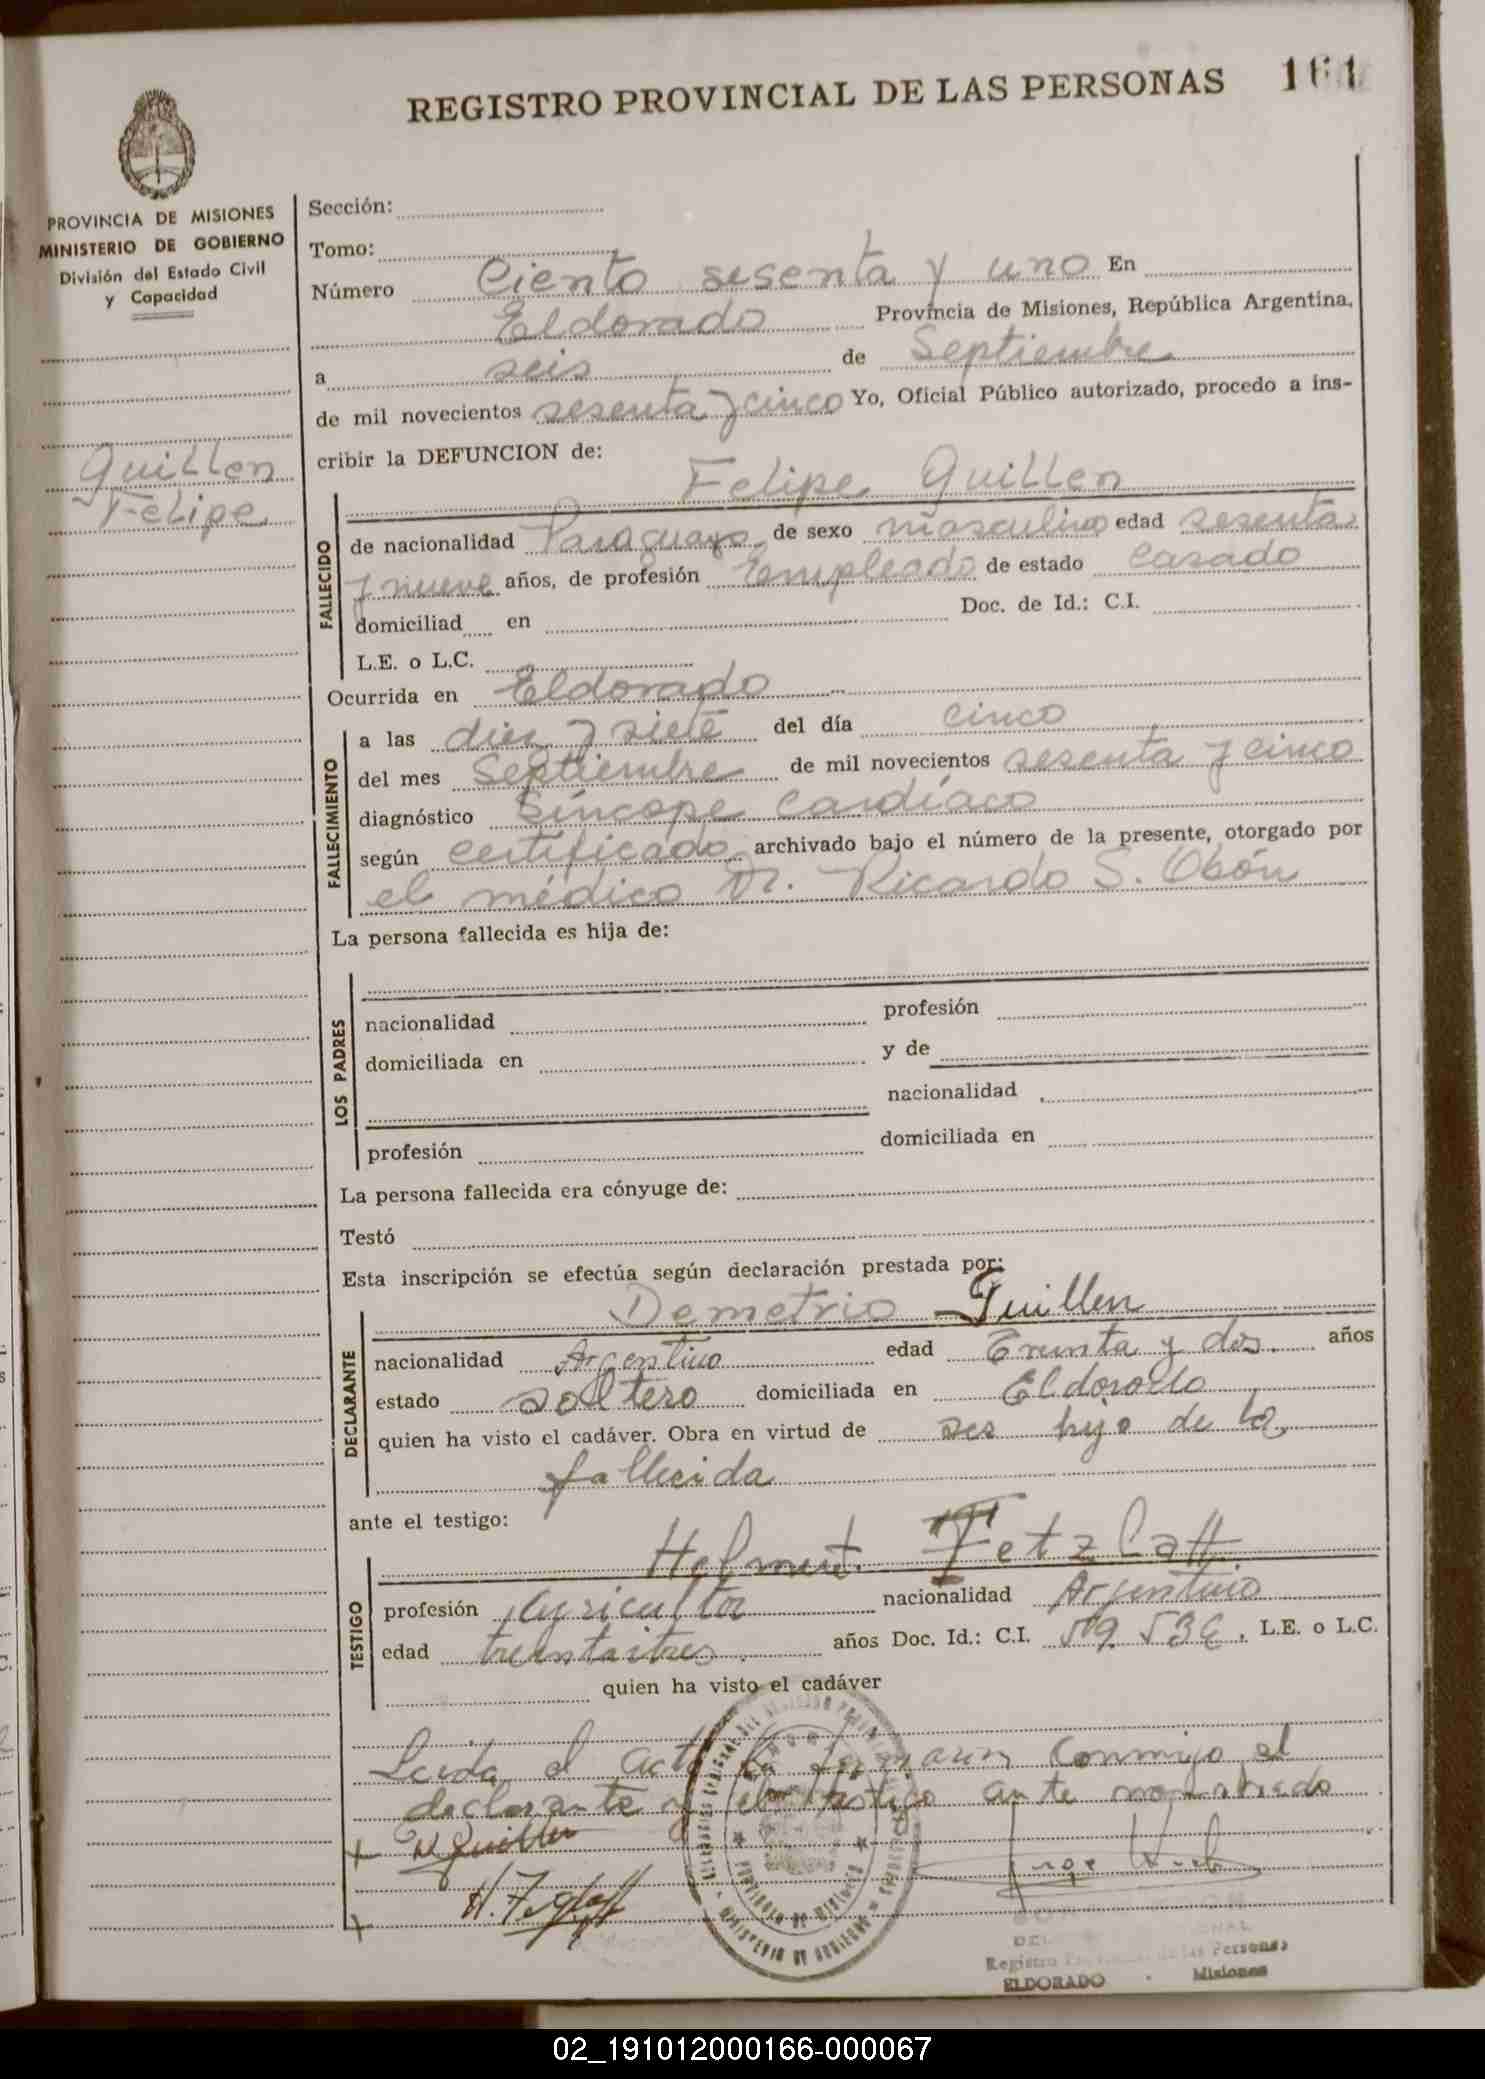 REGISTRO PROVINCIAL DE LAS PERSONAS 161
PROVINCIA DE MISIONES
MINISTERIO DE GOBIERNO
División del Estado Civil
y Capacidad
Guillen
Felipe
Sección:
Tomo:
Número Ciento sesenta y uno En
Eldorado Provincia de Misiones, República Argentina,
a seis de Septiembre
de mil novecientos sesenta y cinco Yo, Oficial Público autorizado, procedo a ins-
cribir la DEFUNCION de:
Felipe Guillen
FALLECIDO
de nacionalidad Paraguayo de sexo masculino edad sesenta
y nueve años, de profesión Empleado de estado casado
domiciliad en Doc. de Id.: C.I.
L.E. o L.C.
Ocurrida en Eldorado
FALLECIMIENTO
a las diez y siete del día cinco
del mes Septiembre de mil novecientos sesenta y cinco
diagnóstico Síncope Cardíaco
según certificado archivado bajo el número de la presente, otorgado por
el médico Dr. Ricardo S. Obón
La persona fallecida es hija de:
LOS PADRES
nacionalidad profesión
domiciliada en y de
nacionalidad
profesión domiciliada en
La persona fallecida era cónyuge de:
Testó
Esta inscripción se efectúa según declaración prestada por:
Demetrio Guillen
DECLARANTE
nacionalidad Argentino edad Treinta y dos. años
estado soltero domiciliada en Eldorado
quien ha visto el cadáver. Obra en virtud de ser hijo de la
fallecida
ante el testigo:
Helmut Fetzlaff
TESTIGO
profesión Agricultor nacionalidad Argentino
edad treintaitres años Doc. Id.: C.I. L.E. o L.C.
quien ha visto el cadáver
Leida el acta la firman conmigo el
declarante y el testigo ante nombrado
Guillen
H. Fetzlaff
PROVINCIA DE MISIONES
MINISTERIO DE GOBIERNO
Registro de las Personas
ELDORADO - Misiones
02_191012000166-000067